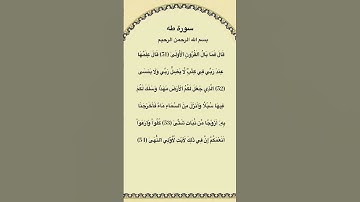 سورة طه
بسم الله الرحمن الرحيم
قَالَ فَمَا بَالُ الْقُرُونِ الْأُولَىٰ (51) قَالَ عِلْمُهَا
عِندَ رَبِّي فِي كِتَابٍ لَّا يَضِلُّ رَبِّي وَلَا يَنسَى
(52) الَّذِي جَعَلَ لَكُمُ الْأَرْضَ مَهْدًا وَسَلَكَ لَكُمْ
فِيهَا سُبُلًا وَأَنزَلَ مِنَ السَّمَاءِ مَاءً فَأَخْرَجْنَا
بِهِ أَزْوَاجًا مِّن نَّبَاتٍ شَتَّىٰ (53) كُلُوا وَارْعَوْا
أَنْعَامَكُمْ إِنَّ فِي ذَٰلِكَ لَآيَاتٍ لِّأُولِي النُّهَىٰ (54)